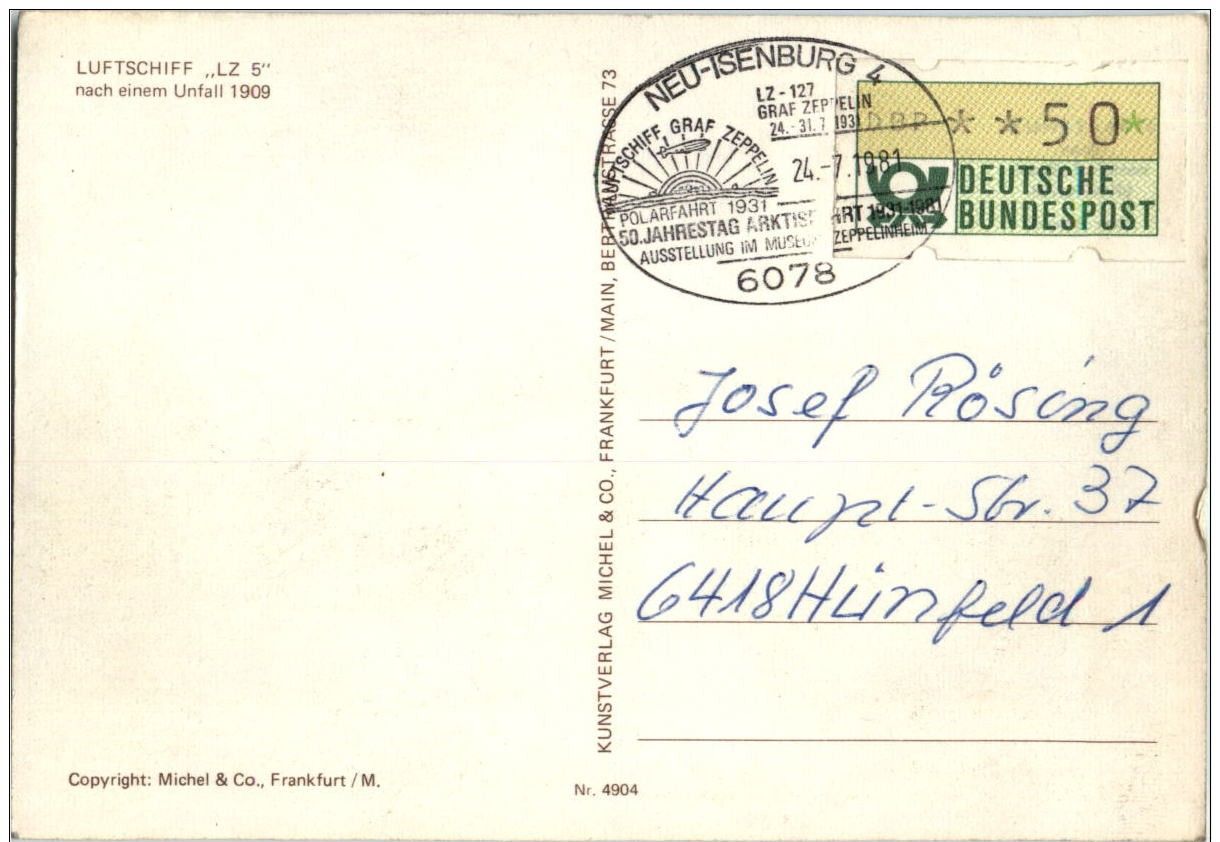 LUFTSCHIFF „LZ 5“
nach einem Unfall 1909
NEU-ISENBURG 4
LZ - 127
GRAF ZEPPELIN
24.-31.7.1931
LUFTSCHIFF GRAF ZEPPELIN
24.-7.1981
POLARFAHRT 1931
50.JAHRESTAG ARKTISFAHRT 1931-1981
AUSSTELLUNG IM MUSEUM ZEPPELINHEIM
6078
DBP * * 50*
DEUTSCHE
BUNDESPOST
KUNSTVERLAG MICHEL & CO., FRANKFURT / MAIN, BERTRAMSTRASSE 73
Josef Rösing
Haupt-Str. 37
6418 Hünfeld 1
Copyright: Michel & Co., Frankfurt / M.
Nr. 4904